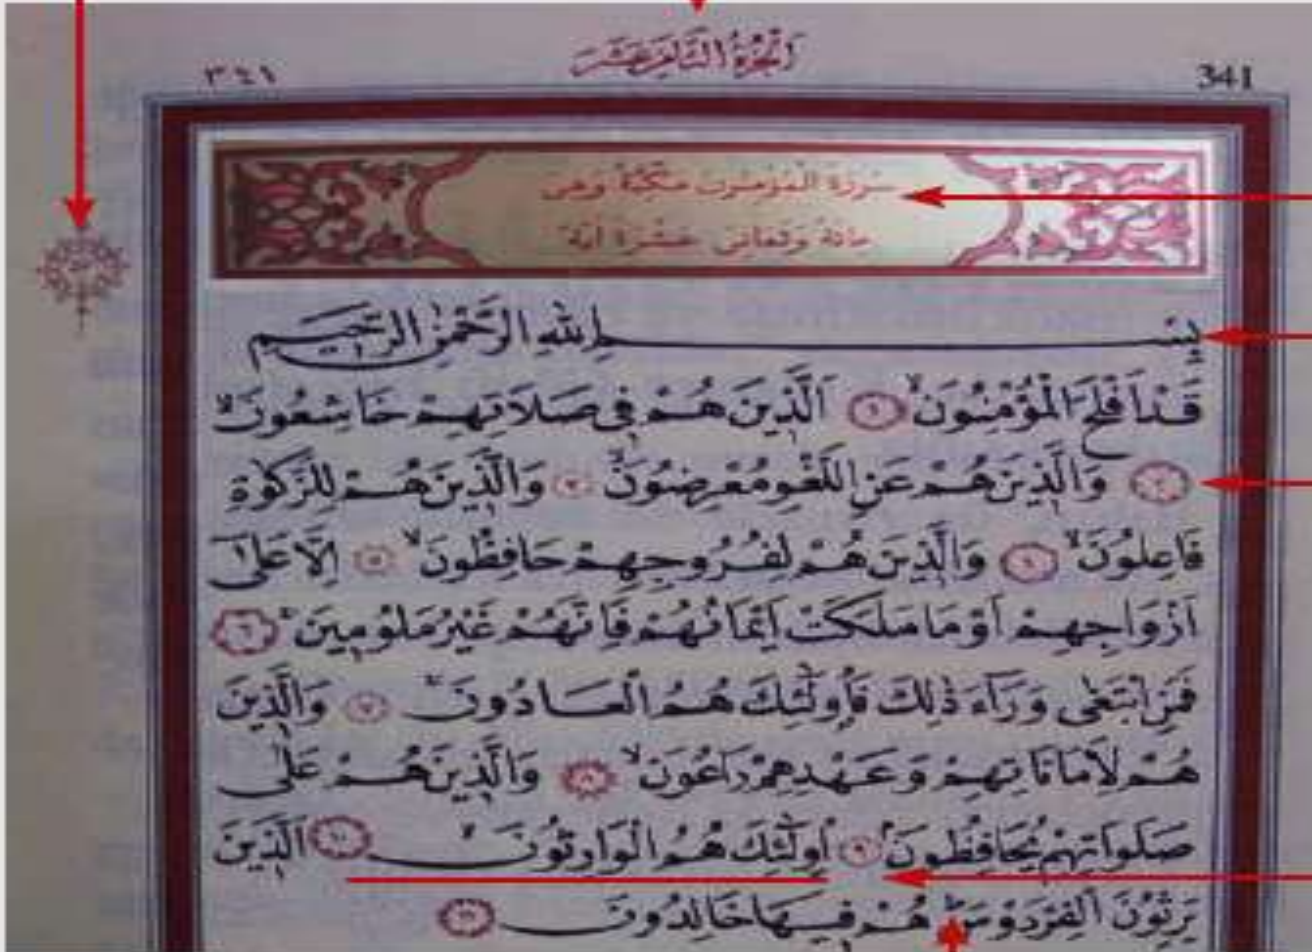 ٣٤١ اَلْجُزْءُ الثَّامِنَ عَشَرَ 341
سُورَةُ الْمُؤْمِنُونَ مَكِّيَّةٌ وَهِيَ
مِائَةٌ وَثَمَانِي عَشْرَةَ اٰيَةً
بِسْمِ اللّٰهِ الرَّحْمٰنِ الرَّحِيمِ
قَدْ اَفْلَحَ الْمُؤْمِنُونَۙ ﴿١﴾ اَلَّذِينَ هُمْ فِي صَلَاتِهِمْ خَاشِعُونَۙ
﴿٢﴾ وَالَّذِينَ هُمْ عَنِ اللَّغْوِ مُعْرِضُونَۙ ﴿٣﴾ وَالَّذِينَ هُمْ لِلزَّكٰوةِ
فَاعِلُونَۙ ﴿٤﴾ وَالَّذِينَ هُمْ لِفُرُوجِهِمْ حَافِظُونَۙ ﴿٥﴾ اِلَّا عَلٰٓى
اَزْوَاجِهِمْ اَوْ مَا مَلَكَتْ اَيْمَانُهُمْ فَاِنَّهُمْ غَيْرُ مَلُومِينَۚ ﴿٦﴾
فَمَنِ ابْتَغٰى وَرَٓاءَ ذٰلِكَ فَاُو۬لٰٓئِكَ هُمُ الْعَادُونَۚ ﴿٧﴾ وَالَّذِينَ
هُمْ لِاَمَانَاتِهِمْ وَعَهْدِهِمْ رَاعُونَۙ ﴿٨﴾ وَالَّذِينَ هُمْ عَلٰى
صَلَوَاتِهِمْ يُحَافِظُونَۢ ﴿٩﴾ اُو۬لٰٓئِكَ هُمُ الْوَارِثُونَۙ ﴿١٠﴾ اَلَّذِينَ
يَرِثُونَ الْفِرْدَوْسَۜ هُمْ فِيهَا خَالِدُونَ ﴿١١﴾